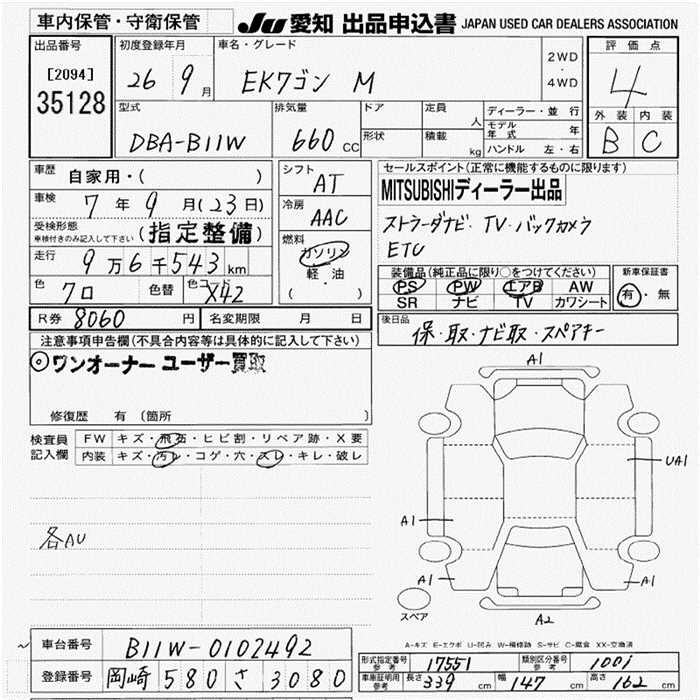 車内保管・守衛保管
JU 愛知 出品申込書 JAPAN USED CAR DEALERS ASSOCIATION
出品番号
[2094]
35128
初度登録年月
26 9月
車名・グレード
EKワゴン M
2WD
・
4WD
評価点
4
外装 内装
B C
型式
DBA-B11W
排気量
660 CC
ドア
形状
定員
人
積載
kg
ディーラー・並行
モデル年式 年
ハンドル 左・右
車歴
自家用・( )
車検
7年9月(23日)
受検形態
車検付きのみ記入して下さい
(指定整備)
走行
9万6千543km
色
クロ
色替
色コード
X42
シフト
AT
冷房
AAC
燃料
ガソリン
軽・油
( )
セールスポイント(正常に機能するものに限ります)
MITSUBISHIディーラー出品
ストラーダナビ・TV・バックカメラ
ETC
装備品(純正品に限り○をつけてください)
PS PW エアB AW
SR ナビ TV カワシート
新車保証書
有・無
R券 8060 円
名変期限 月 日
後日品
保・取・ナビ取・スペアキー
注意事項申告欄(不具合内容等は具体的に記入して下さい)
◎ワンオーナー ユーザー買取
修復歴 有 (箇所 )
検査員
記入欄
FW キズ・飛石・ヒビ割・リペア跡・X要
内装 キズ・汚レ・コゲ・穴・スレ・キレ・破レ
各AU
A1
UA1
A1
A1
A1
A2
スペア
A-キズ E-エクボ U-凹み W-補修跡 S-サビ C-腐食 XX-交換済
車台番号
B11W-0102492
登録番号
岡崎 580 さ 3080
形式指定番号
参考
17551
類別区分番号
参考
車庫証明用
参考
長さ 339 cm 幅 147 cm 高さ 162 cm